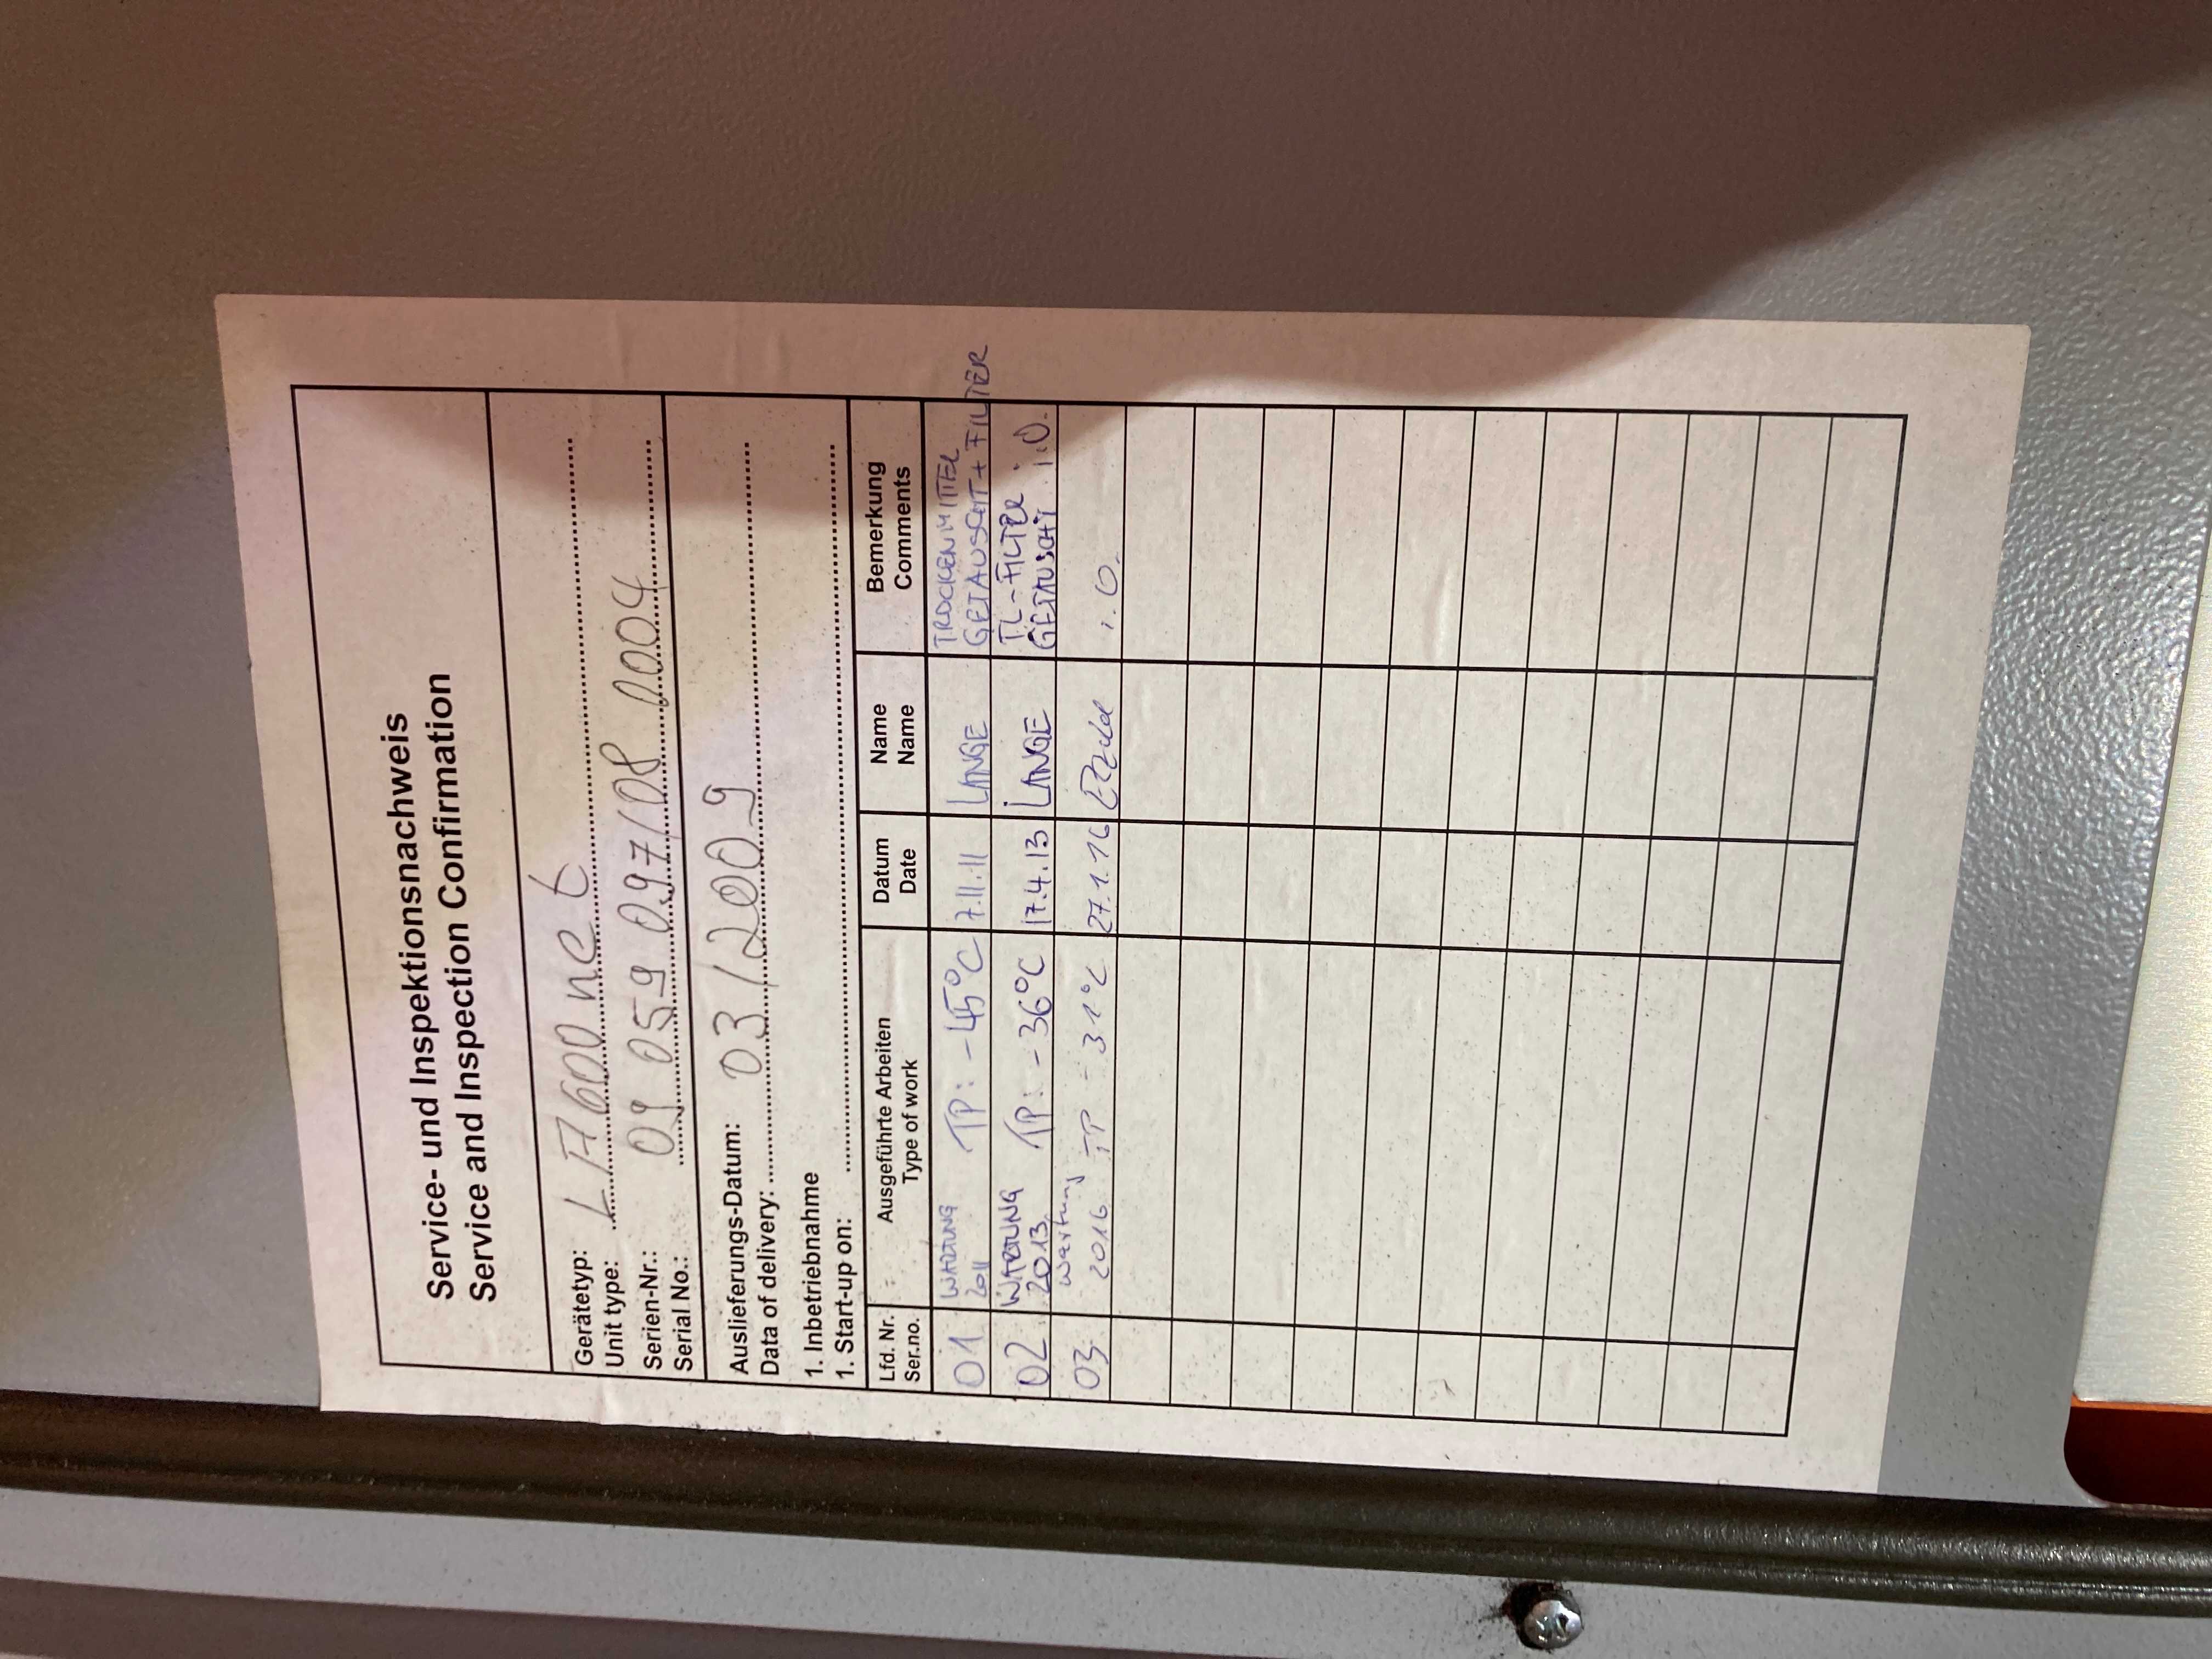 Service- und Inspektionsnachweis
Service and Inspection Confirmation
Gerätetyp:
Unit type: LA600 net
Serien-Nr.:
Serial No.: 09 059 097/08 0004
Auslieferungs-Datum:
Data of delivery: 03/2009
1. Inbetriebnahme
1. Start-up on:
Lfd. Nr. Ausgeführte Arbeiten Datum Name Bemerkung
Ser.no. Type of work Date Name Comments
01 WARTUNG 2011 TP: -45°C 7.11.11 LANGE TROCKENMITTEL
GETAUSCHT + FILTER
02 WARTUNG 2013 TP: -36°C 17.4.13 LANGE TL-FILTER
GETAUSCHT i.O.
03 Wartung 2016 TP -31°C 27.1.16 i.O.